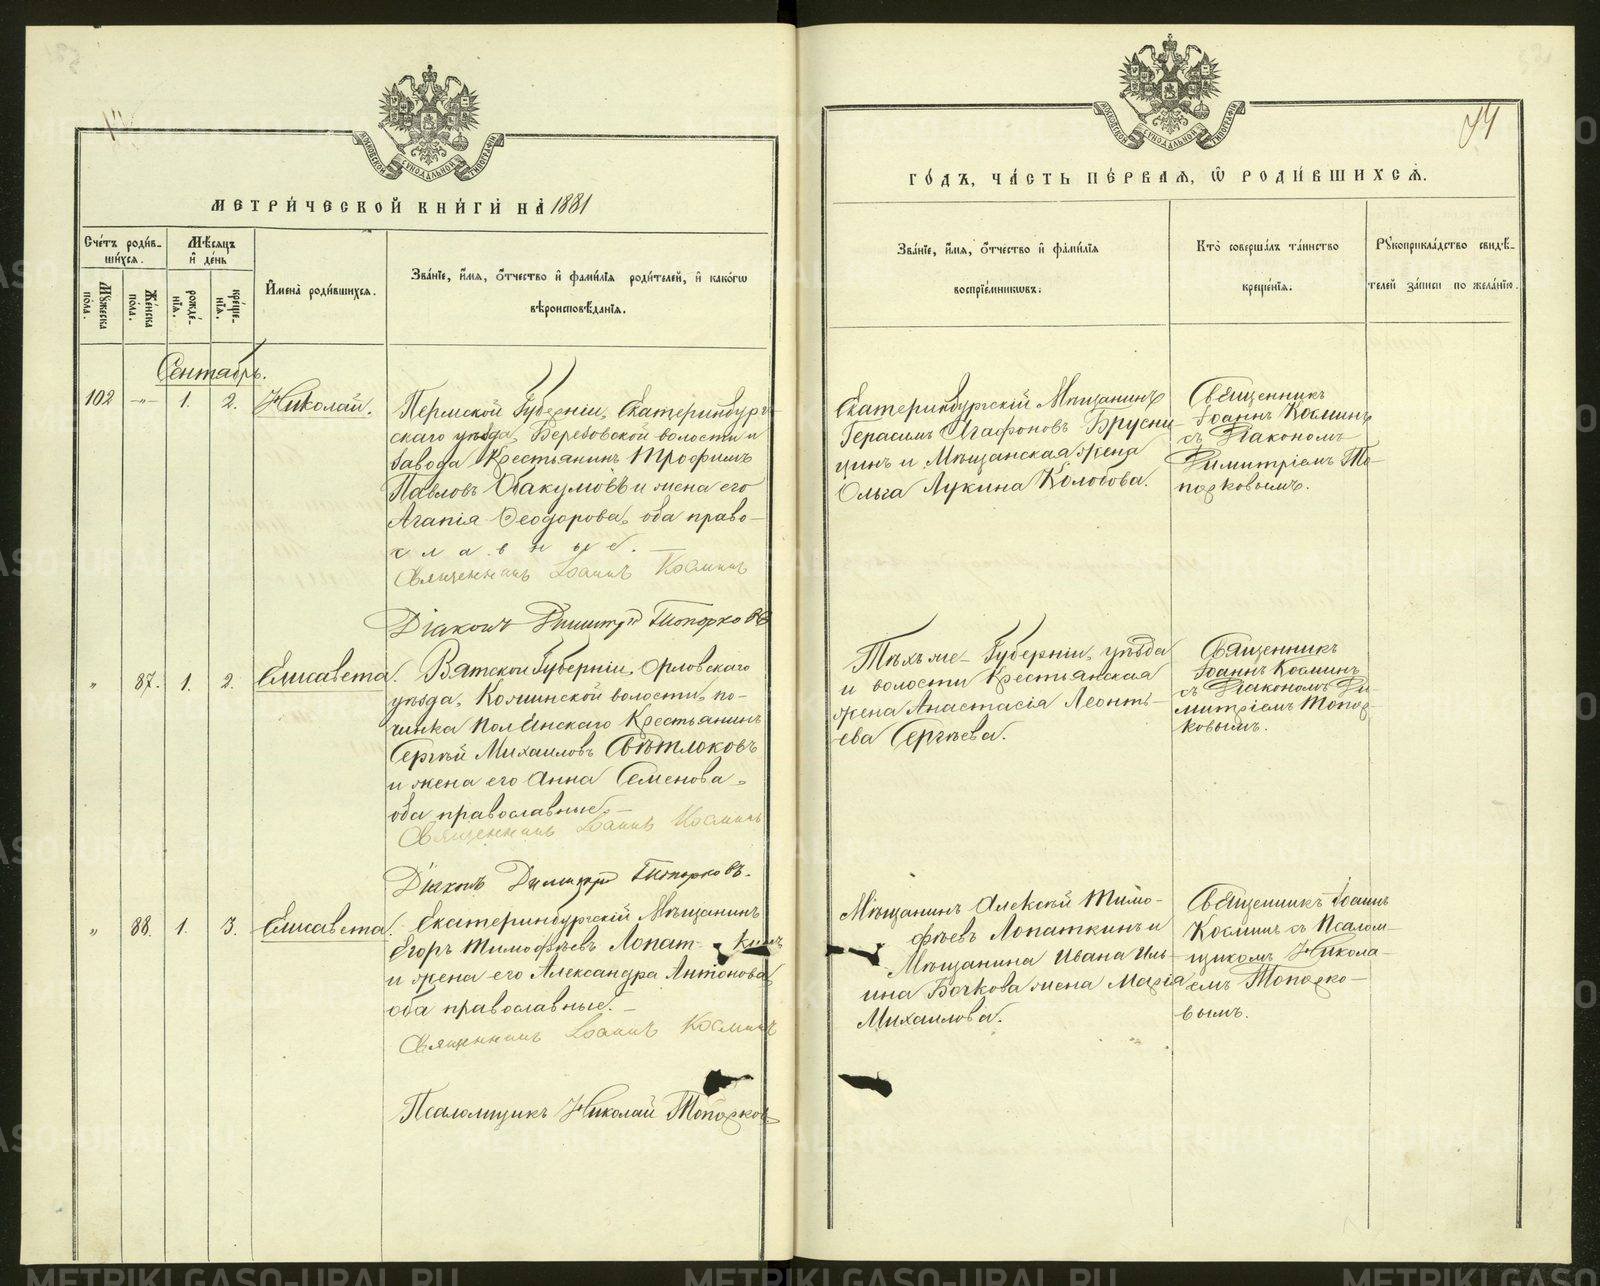 МОСКОВСКОЙ СУНОДАЛЬНОЙ ТИПОГРАФІИ
МЕТРИ́ЧЕСКОЙ КНИ́ГИ НА̀ 1881
Сче́тъ роди́в-
шихся.
Мѣ́сяцъ
и҆ де́нь
Мꙋ́жеска
пола.
Же́нска
по́ла.
рожде́-
нїя.
креще́-
нїя.
И҆мена̀ роди́вшихся.
Зва́нїе, и҆́мя, ѻ҆́тчество и҆ фами́лїя роди́телей, и҆ како́гѡ
вѣроисповѣ́данїя.
Сентябрь.
102 -"- 1. 2. Николай.
Пермской Губерніи, Екатеринбург-
скаго уѣзда, Березовской волости и
завода Крестьянинъ Трофимъ
Павловъ Обакумовъ и жена его
Агапія Ѳеодорова, оба право-
славные.
Священникъ Іоаннъ Косминъ
Діаконъ Димитрій Топорковъ
" 87. 1. 2. Елисавета.
Вятской Губерніи, Орловскаго
уѣзда, Кошинской волости, по-
чинка Полянскаго Крестьянинъ
Сергѣй Михаиловъ Свѣтлаковъ
и жена его Анна Семенова,
оба православные.
Священникъ Іоаннъ Косминъ
Діаконъ Димитрій Топорковъ.
" 88. 1. 3. Елисавета.
Екатеринбургскій Мѣщанинъ
Егоръ Тимофѣевъ Лопаткинъ
и жена его Александра Антонова
оба православные.
Священникъ Іоаннъ Косминъ
Псаломщикъ Николай Топорковъ
МОСКОВСКОЙ СУНОДАЛЬНОЙ ТИПОГРАФІИ
ГО́ДЪ, ЧА́СТЬ ПЕ́РВАЯ, Ѡ҆ РОДИ́ВШИХСЯ.
Зва́нїе, и҆́мя, ѻ҆́тчество и҆ фами́лїя
воспрїе́мникѡвъ.
Кто̀ соверша́лъ та́инство
креще́нїя.
Рꙋкоприкла́дство свидѣ́-
телей за́писи по жела́нїю.
Екатеринбургскій Мѣщанинъ
Герасимъ Агафоновъ Брусни-
цинъ и Мѣщанская жена
Ольга Лукина Колобова.
Священникъ
Іоаннъ Косминъ
съ Діакономъ
Димитріемъ То-
порковымъ.
Тѣхъ же Губерніи, уѣзда
и волости Крестьянская
жена Анастасія Леонть-
ева Сергѣева.
Священникъ
Іоаннъ Косминъ
съ Діакономъ Ди-
митріемъ Топор-
ковымъ.
Мѣщанинъ Алексѣй Тимо-
фѣевъ Лопаткинъ и
Мѣщанина Ивана Иль-
ина Бочкова жена Марія
Михаилова.
Священникъ Іоаннъ
Косминъ съ Псалом-
щикомъ Никола-
емъ Топорко-
вымъ.
METRIKI.GASO-URAL.RU